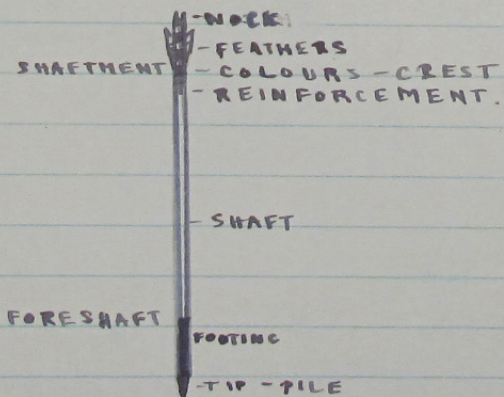 - NOCK
- FEATHERS
SHAFTMENT - COLOURS - CREST
- REINFORCEMENT.
- SHAFT
FORESHAFT
FOOTING
- TIP - PILE